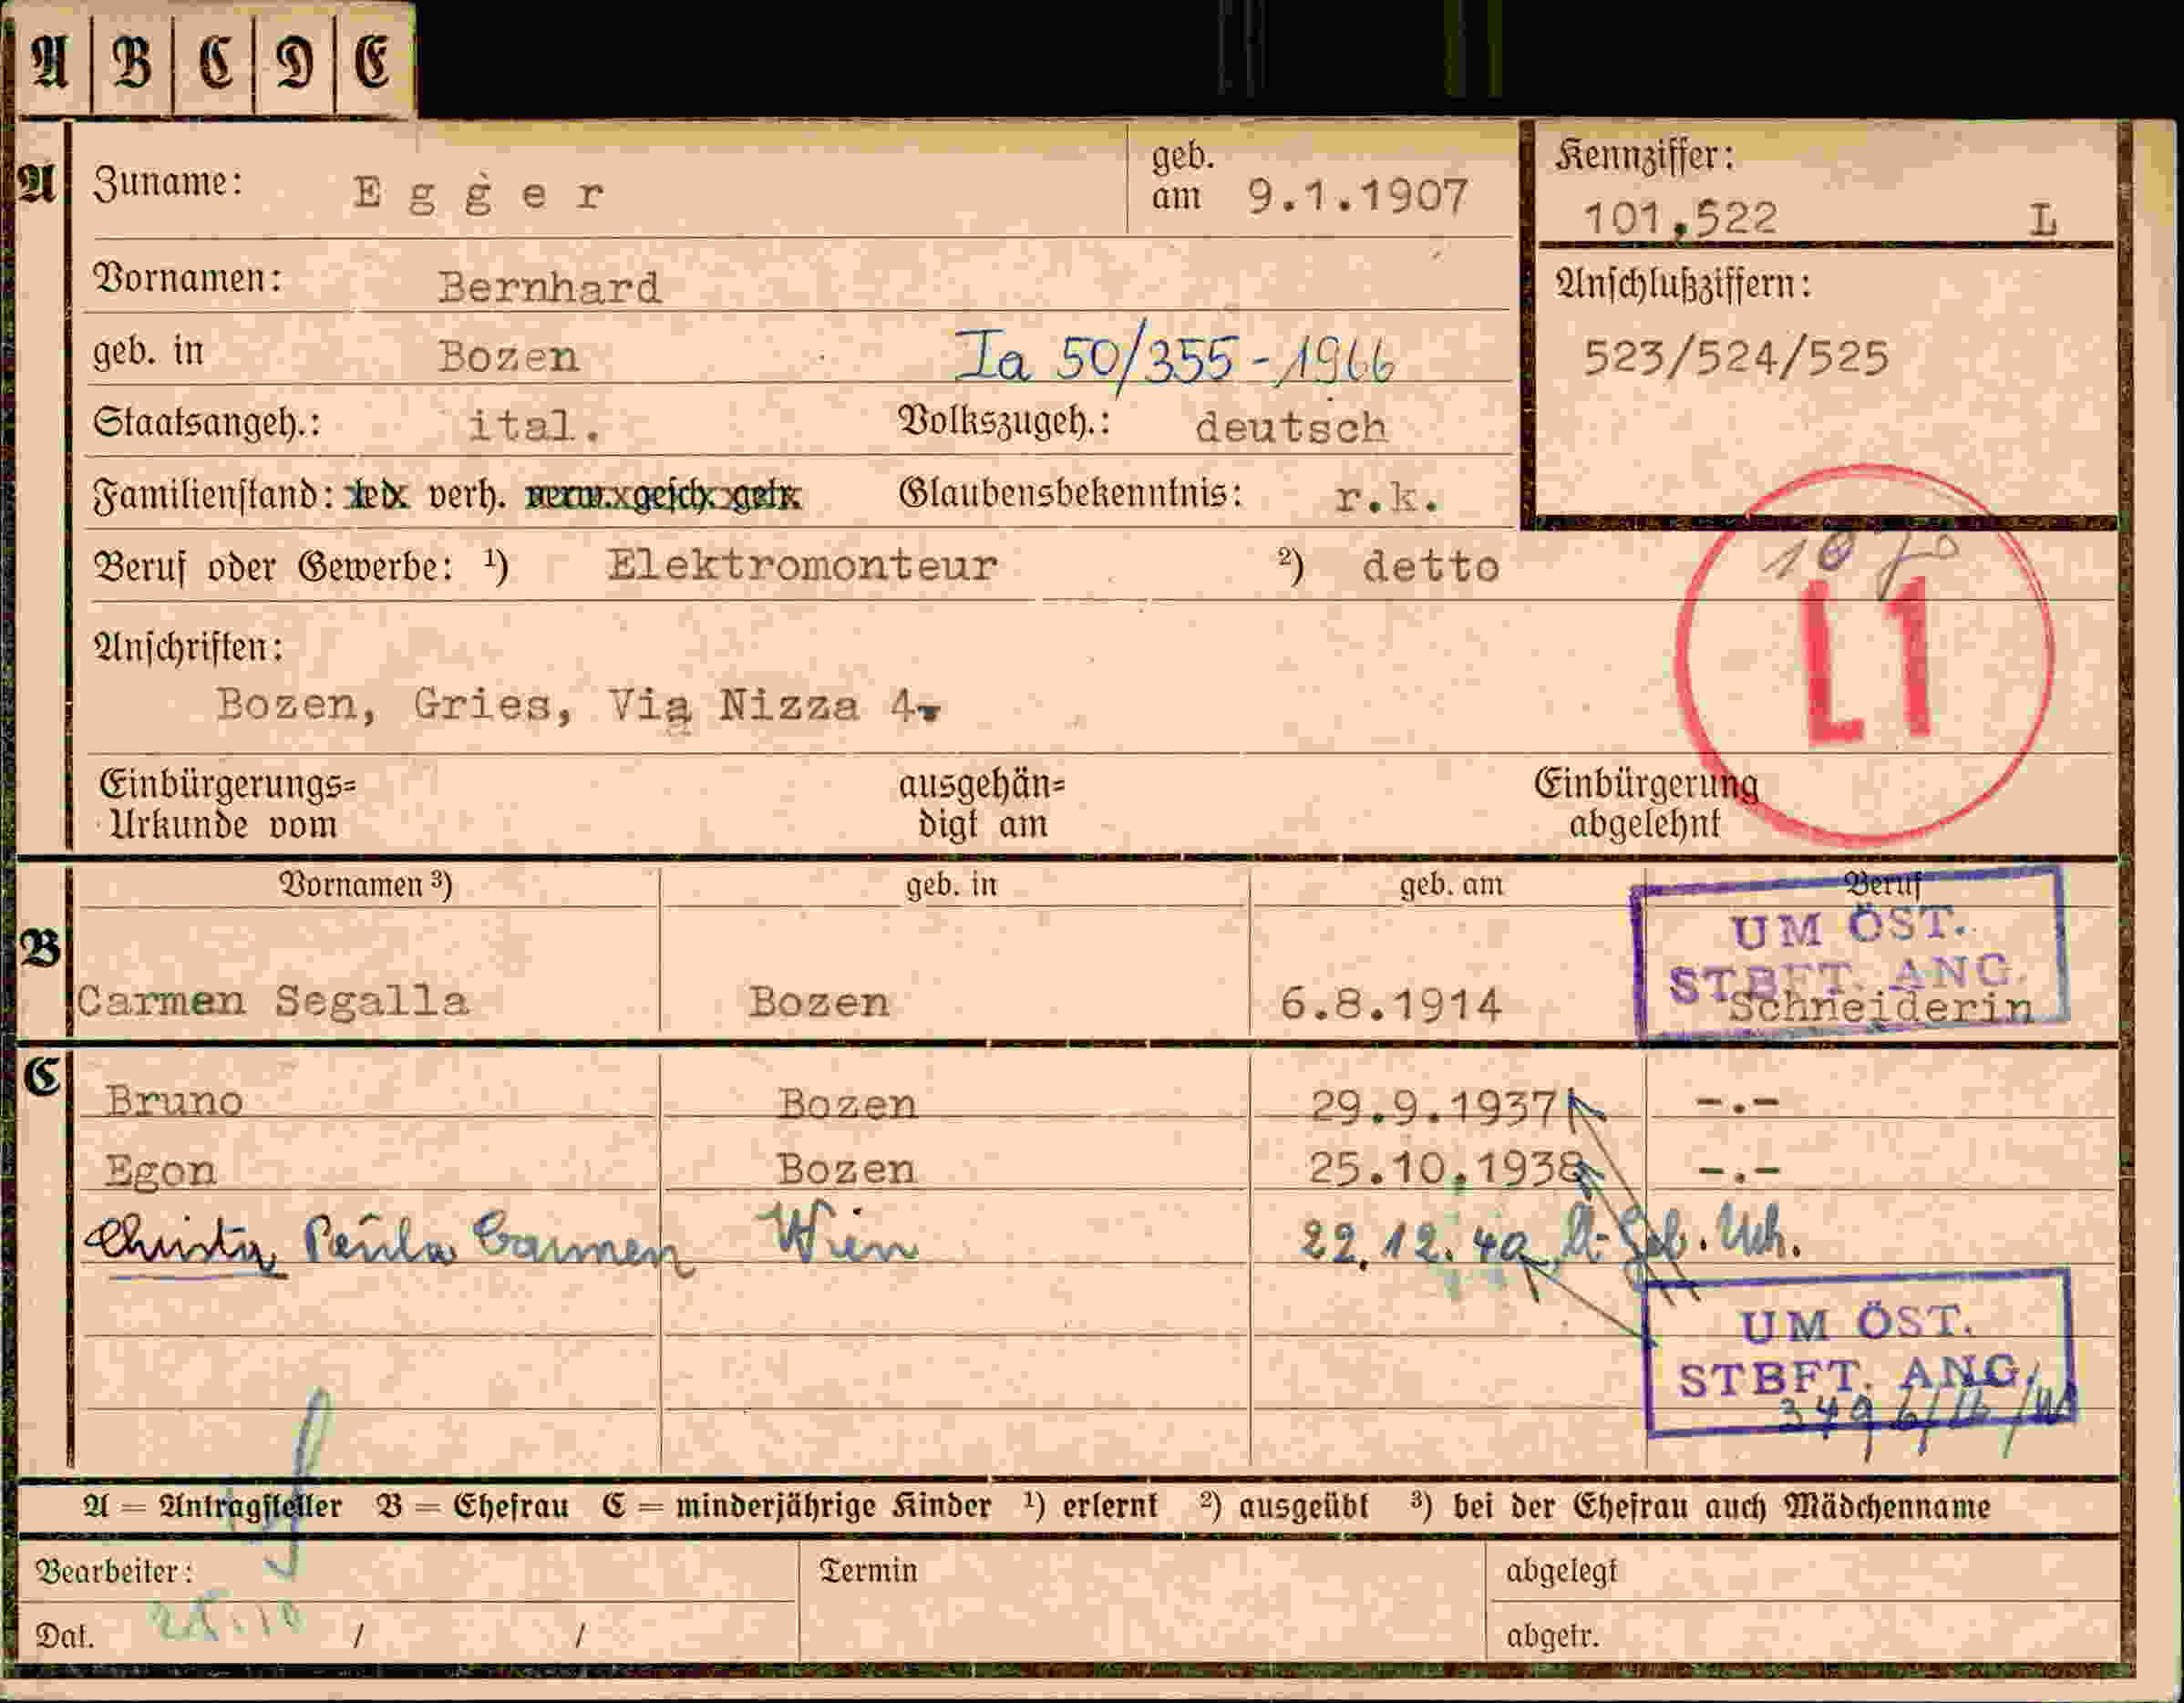 A B C D E
A Zuname: Egger geb. am 9.1.1907
Kennziffer: 101.522 L
Vornamen: Bernhard
Anschlußziffern: 523/524/525
geb. in Bozen Ia 50/355-1966
Staatsangeh.: ital. Volkszugeh.: deutsch
Familienstand: led. verh. verw. gesch. getr. Glaubensbekenntnis: r.k.
Beruf oder Gewerbe: ¹) Elektromonteur ²) detto
L1
Anschriften:
Bozen, Gries, Via Nizza 4.
Einbürgerungs= ausgehän= Einbürgerung
Urkunde vom digt am abgelehnt
Vornamen ³) geb. in geb. am Beruf
UM ÖST.
STBFT. ANG.
B Carmen Segalla Bozen 6.8.1914 Schneiderin
C Bruno Bozen 29.9.1937 -.-
Egon Bozen 25.10.1938 -.-
Christa Paula Carmen Wien 22.12.40 Geb. Urk.
UM ÖST.
STBFT. ANG.
A = Antragsteller B = Ehefrau C = minderjährige Kinder ¹) erlernt ²) ausgeübt ³) bei der Ehefrau auch Mädchenname
Bearbeiter: Termin abgelegt
Dat. 25.10 / / abgetr.